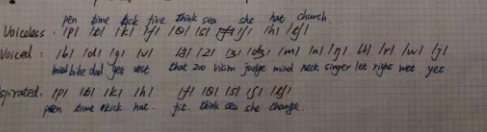 pen time kick five think sea she hat church
Voiceless. /p/ /t/ /k/ /f/ /θ/ /s/ /ʃ/ /h/ /tʃ/
Voiced: /b/ /d/ /g/ /v/ /ð/ /z/ /ʒ/ /dʒ/ /m/ /n/ /ŋ/ /l/ /r/ /w/ /j/
bike dad get vest that zoo judge mind neck singer let right wet yet
spirated. /p/ /t/ /k/ /h/ /f/ /θ/ /s/ /ʃ/ /tʃ/
pen time kick hat. think sea she change